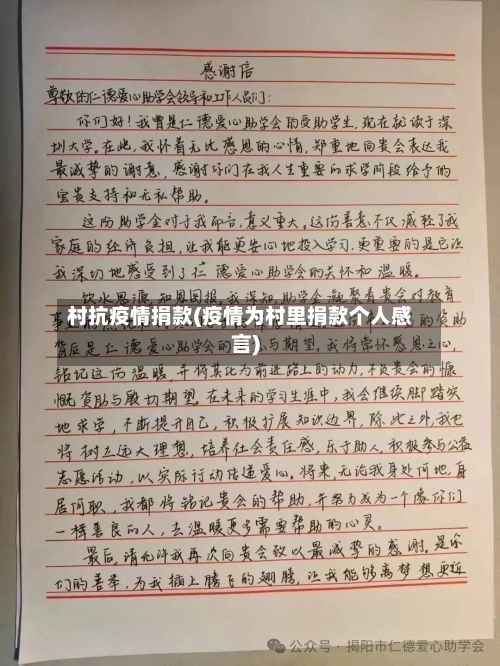 感谢信
尊敬的仁德爱心助学会领导和工作人员们：
你们好！我曾是仁德爱心助学会的受助学生，现在就读于深
圳大学。在此，我怀着无比感恩的心情，郑重地向贵会表达我
最诚挚的谢意，感谢你们在我人生重要的求学阶段给予的
宝贵支持和无私帮助。
这份助学金对于我而言，意义重大。这份善意不仅减轻了我
家庭的经济负担，让我能更安心地投入学习，更重要的是它让
我深切地感受到了仁德爱心助学会的关怀和温暖。
饮水思源，知恩图报。我深知，助学金凝聚着贵会对教育
村抗疫情捐款(疫情为村里捐款个人感
言)
的资助
背后是仁德爱心助学会的 与期望，我将常怀感恩之心，
铭记这份温暖，并将其化为前进路上的动力，不负贵会的慷
慨资助与殷切期望。在未来的学习生涯中，我会继续脚踏实
地求学，不断提升自己，积极扩展知识边界，除此之外，我也
将树立远大理想，培养社会责任感，乐于助人，积极参与公益
志愿活动，以实际行动传递爱心。将来，无论我身处何地，身
居何职，我都将铭记贵会的帮助，并努力成为一个像你们
一样善良的人，去温暖更多需要帮助的心灵。
最后，请允许我再次向贵会致以最诚挚的感谢。是你
们的善举，为我插上腾飞的翅膀，让我能够离梦想更近
公众号·揭阳市仁德爱心助学会